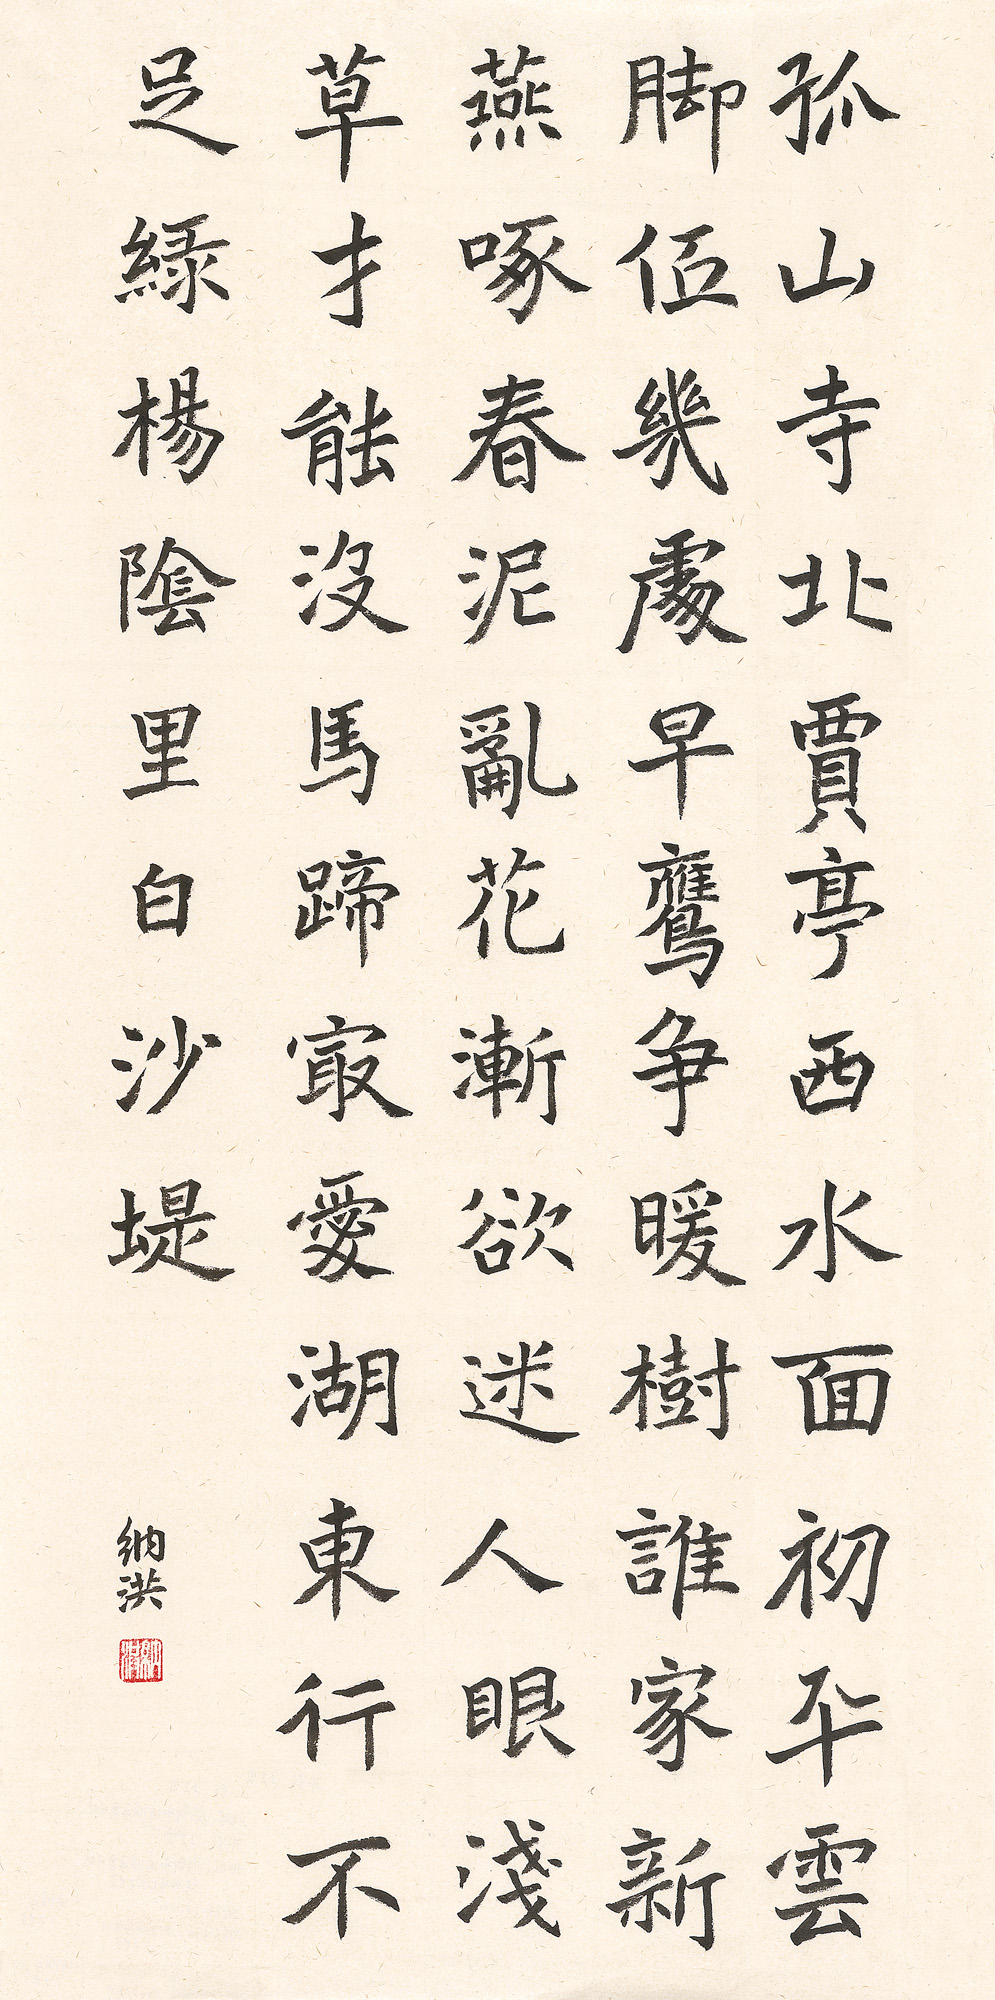 孤山寺北賈亭西水面初平雲
脚低幾處早鷹争暖樹誰家新
燕啄春泥亂花漸欲迷人眼淺
草才能没馬蹄㝡愛湖東行不
足綠楊陰里白沙堤
納洪